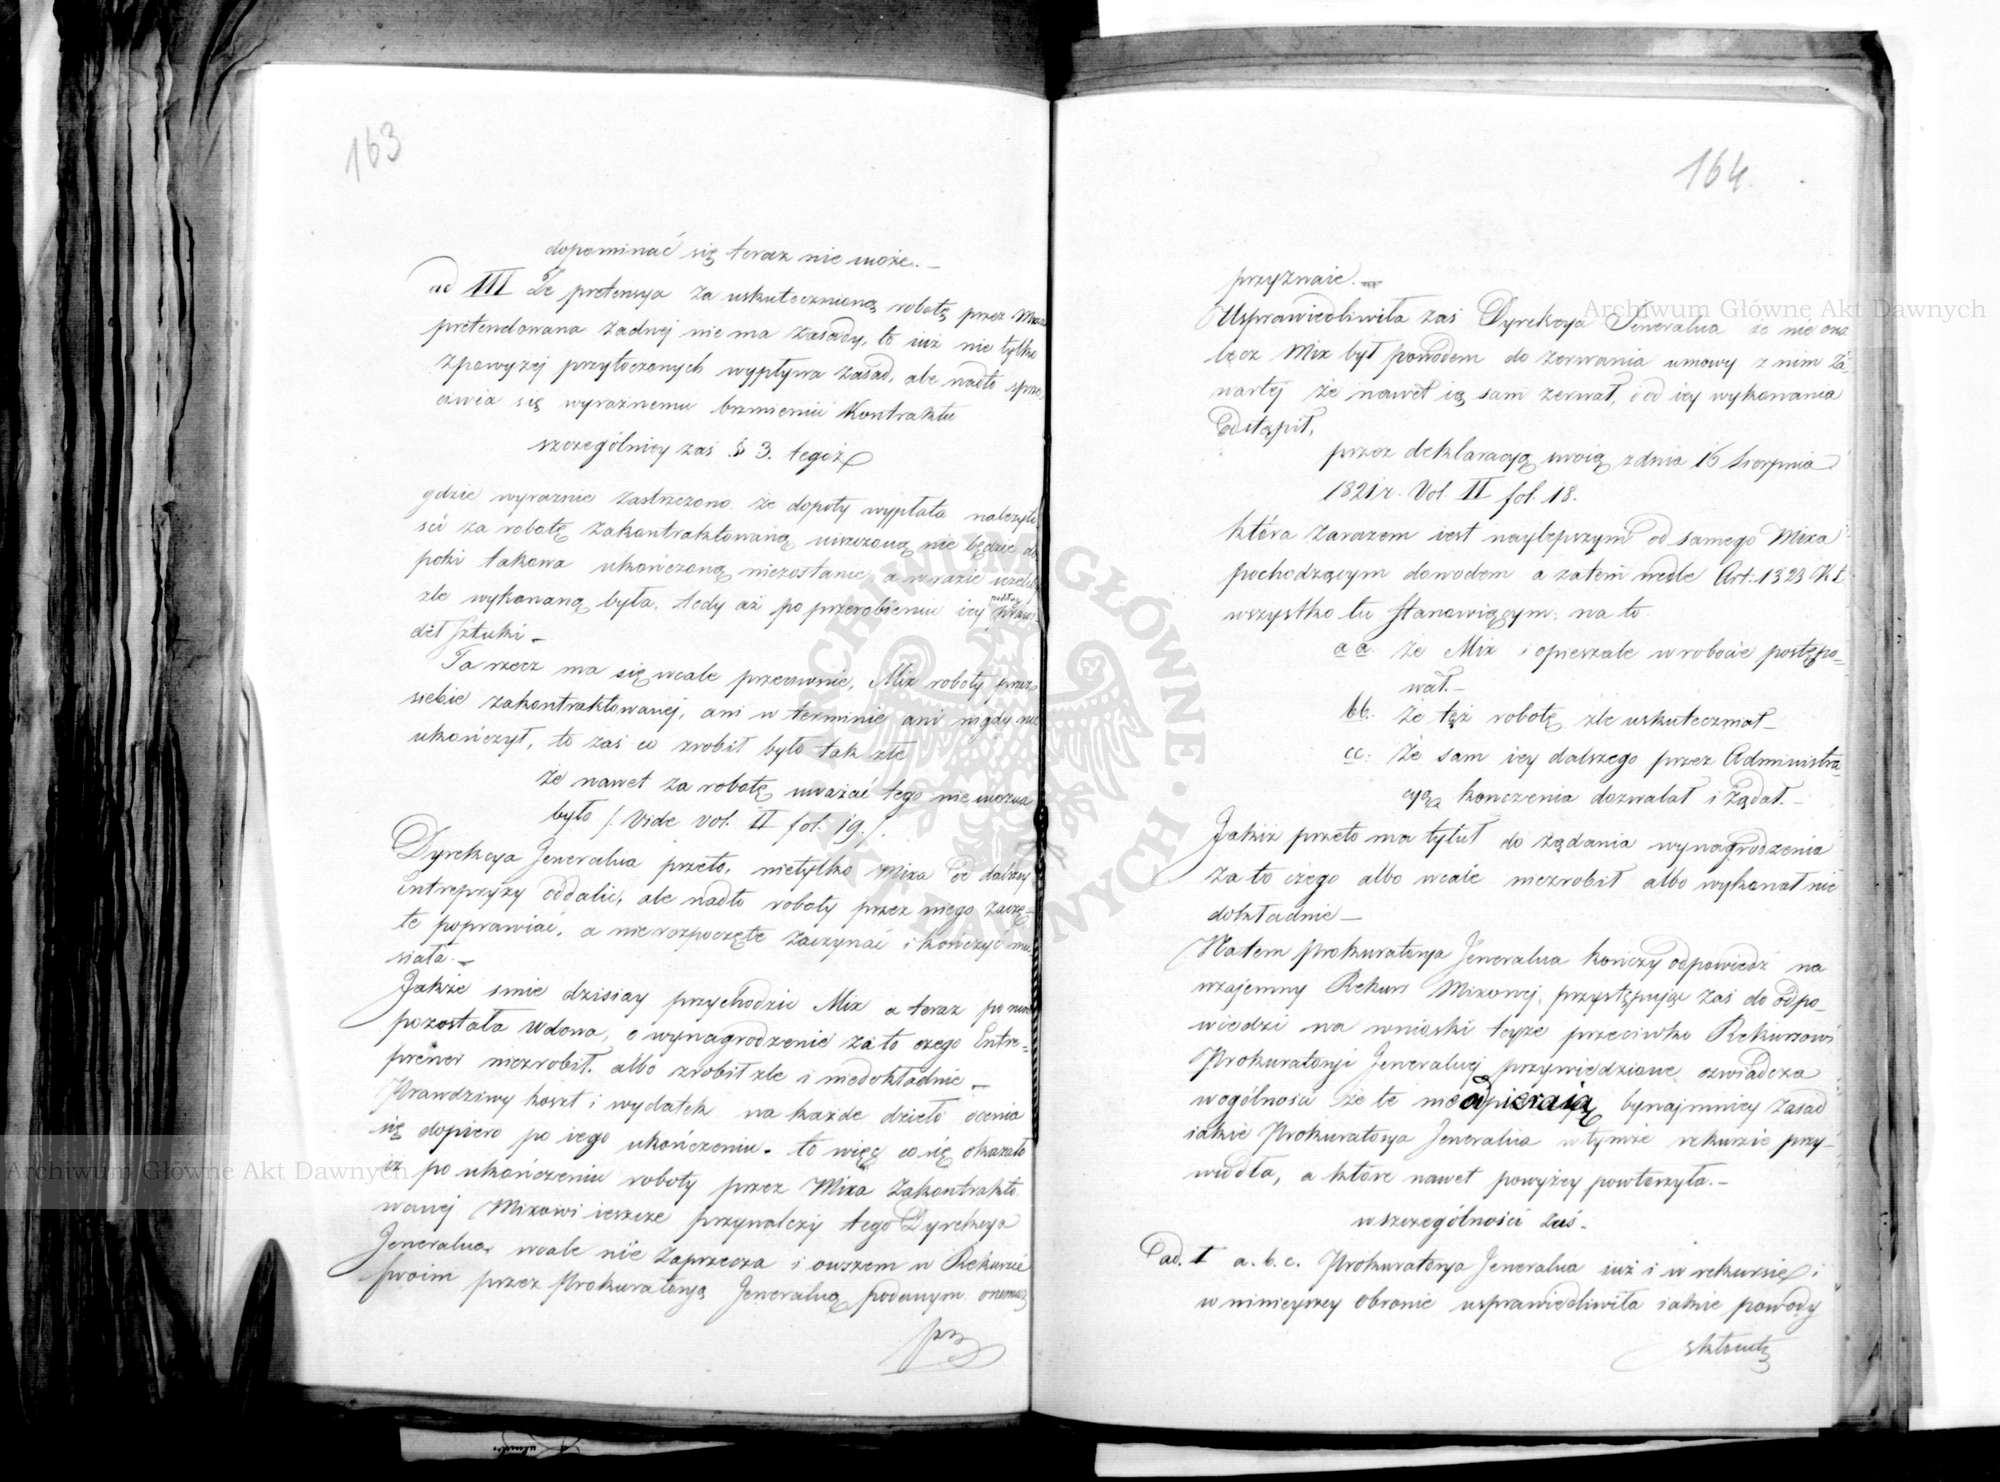 163
dopominać się teraz nie może. –
ad III Że pretensya za uskutecznioną robotę przez Mixa
pretendowana żadnej nie ma zasady, to iuż nie tylko
zpowyżej przytoczonych wypływa zasad, ale nadto sprze
ciwia się wyraźnemu brzmieniu Kontraktu
szczególniey zaś § 3. tegoż
gdzie wyraznie zastrzeżono, że dopoty wypłata należyto
ści za robotę zakontraktowaną uiszczoną nie będzie do
poki takowa ukończoną niezostanie, a w razie ieżeliby
zle wykonaną była, tedy aż po przerobieniu iey podług prawi
deł Sztuki –
Ta rzecz ma się wcale przeciwnie, Mix roboty przez
siebie zakontraktowanej, ani w terminie ani nigdy nie
ukończył, to zaś co zrobił było tak zle
że nawet za robotę uważać tego nie można
było /. Vide vol. II fol. 19./.
Dyrekcya Jeneralna przeto, nietylko Mixa od dalszey
Entrepryzy oddalić, ale nadto roboty przez niego zaczę-
te poprawiać, a nierozpoczęte zaczynać i kończyć mu-
siała. –
Jakże smie dzisiay przychodzić Mix a teraz po nim
pozostała wdowa, o wynagrodzenie za to czego Entre-
prener niezrobił, albo zrobił zle i niedokładnie –
Prawdziwy koszt i wydatek na każde dzieło ocenia
się dopiero po iego ukończeniu. to więc co się okazało
iż po ukończeniu roboty przez Mixa zakontrakto
wanej Mixowi ieszcze przynależy tego Dyrekcya
Jeneralna, wcale nie zaprzecza i owszem w Rekursie
swoim przez Prokuratoryą Jeneralną podanym onemuż
prz
164
przyznaie. –
Usprawiedliwiła zaś Dyrekcya Jeneralna że nie ona
lecz Mix był powodem do zerwania umowy z nim za-
wartej że nawet ią sam zerwał, i od iey wykonania
Odstąpił,
przez deklaracyą swoią z dnia 16 Sierpnia
1821 r. Vol. II fol. 18.
która zarazem iest naylepszym od samego Mixa
pochodzącym dowodem a zatem wedle Art: 1323 K.C.
wszystko tu stanowiącym; na to
aa. że Mix i opieszale w robocie postępo-
wał. –
bb. że też robotę źle uskuteczniał –
cc: że sam iey dalszego przez Administra-
cyą kończenia dozwalał i żądał. –
Jakiż przeto ma tytuł do żądania wynagrodzenia
za to czego albo wcale niezrobił albo wykonał nie
dokładnie –
Natem Prokuratorya Jeneralna kończy odpowiedź na
wzajemny Rekurs Mixowej, przystępując zaś do odpo-
wiedzi na wnioski teyże przeciwko Rekursowi
Prokuratoryi Jeneralnej przywiedzione oświadcza
wogólności że te nieodpieraią bynajmniey zasad
iakie Prokuratorya Jeneralna w tymże rekursie przy-
wiodła, a które nawet powyżey powtorzyła. –
w szczególności zaś –
ad. I a. b. c. Prokuratorya Jeneralna iuż i w rekursie i
w ninieyszey obronie usprawiedliwiła iakie powody
skłoniły
Archiwum Główne Akt Dawnych
Archiwum Główne Akt Dawnych
ARCHIWUM GŁÓWNE AKT DAWNYCH